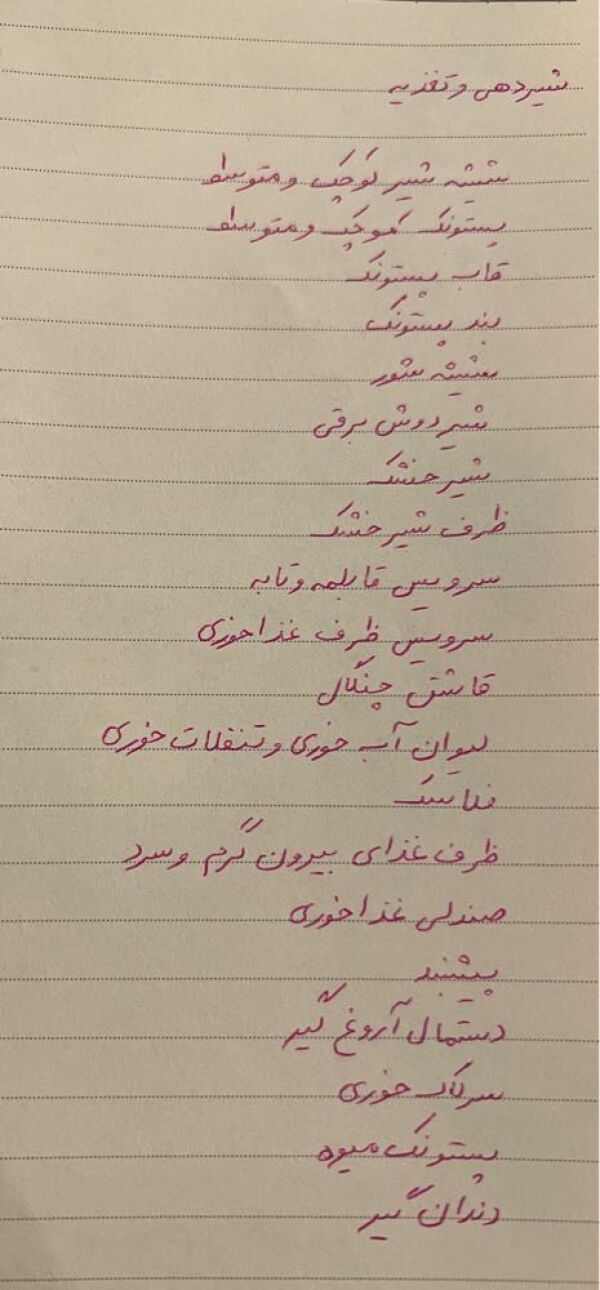 شیردهی و تغذیه
شیشه شیر کوچک و متوسط
پستونک کوچک و متوسط
قاب پستونک
بند پستونک
شیشه شور
شیردوش برقی
شیر خشک
ظرف شیر خشک
سرویس قابلمه و تابه
سرویس ظرف غذاخوری
قاشق چنگال
لیوان آب خوری و تنقلات خوری
فلاسک
ظرف غذای بیرون گرم و سرد
صندلی غذاخوری
پیشبند
دستمال آروغ گیر
سرلاک خوری
پستونک میوه
دندان گیر